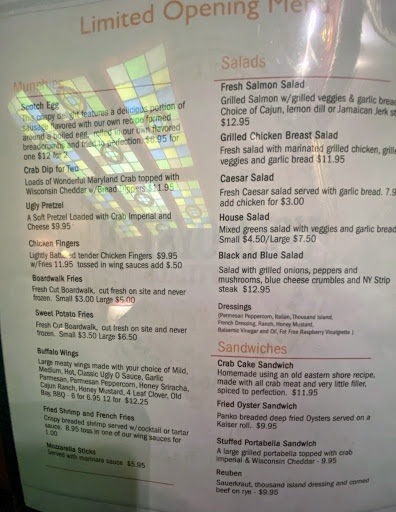 Limited Opening Menu
Munchies
Scotch Egg
This crispy delight features a delicious portion of
Sausage flavored with our own recipe formed
around a boiled egg, rolled in our own flavored
breadcrumbs and fried to perfection. $6.95 for
one $12 for 2
Crab Dip for Two
Loads of Wonderful Maryland Crab topped with
Wisconsin Cheddar w/Bread $11.95
Ugly Pretzel
A Soft Pretzel Loaded with Crab Imperial and
Cheese $9.95
Chicken Fingers
Lightly Battered tender Chicken Fingers $9.95
w/Fries 11.95 tossed in wing sauces add $.50
Boardwalk Fries
Fresh Cut Boardwalk, cut fresh on site and never
frozen. Small $3.00 Large $5.00
Sweet Potato Fries
Fresh Cut Boardwalk, cut fresh on site and never
frozen. Small $3.50 Large $6.50
Buffalo Wings
Large meaty wings made with your choice of Mild,
Medium, Hot, Classic Ugly O Sauce, Garlic
Parmesan, Parmesan Peppercorn, Honey Sriracha,
Cajun Ranch, Honey Mustard, 4 Leaf Clover, Old
Bay, BBQ - 6 for 6.95 12 for $12.25
Fried Shrimp and French Fries
Crispy breaded shrimp served w/cocktail or tartar
sauce. 8.95 toss in one of our wing sauces for
1.00
Mozzarella Sticks
Served with marinara sauce $5.95
Salads
Fresh Salmon Salad
Grilled Salmon w/grilled veggies & garlic brea
Choice of Cajun, lemon dill or Jamaican Jerk st
$12.95
Grilled Chicken Breast Salad
Fresh salad with marinated grilled chicken, grille
veggies and garlic bread $11.95
Caesar Salad
Fresh Caesar salad served with garlic bread. 7.9
add chicken for $3.00
House Salad
Mixed greens salad with veggies and garlic bread
Small $4.50/Large $7.50
Black and Blue Salad
Salad with grilled onions, peppers and
mushrooms, blue cheese crumbles and NY Strip
steak $12.95
Dressings
(Parmesan Peppercorn, Italian, Thousand Island,
French Dressing, Ranch, Honey Mustard,
Balsamic Vinegar and Oil, Fat Free Raspberry Vinaigrette )
Sandwiches
Crab Cake Sandwich
Homemade using an old eastern shore recipe,
made with all crab meat and very little filler,
spiced to perfection. $11.95
Fried Oyster Sandwich
Panko breaded deep fried Oysters served on a
Kaiser roll. $9.95
Stuffed Portabella Sandwich
A large grilled portabella topped with crab
imperial & Wisconsin Cheddar - 9.95
Reuben
Sauerkraut, thousand island dressing and corned
beef on rye - $9.95